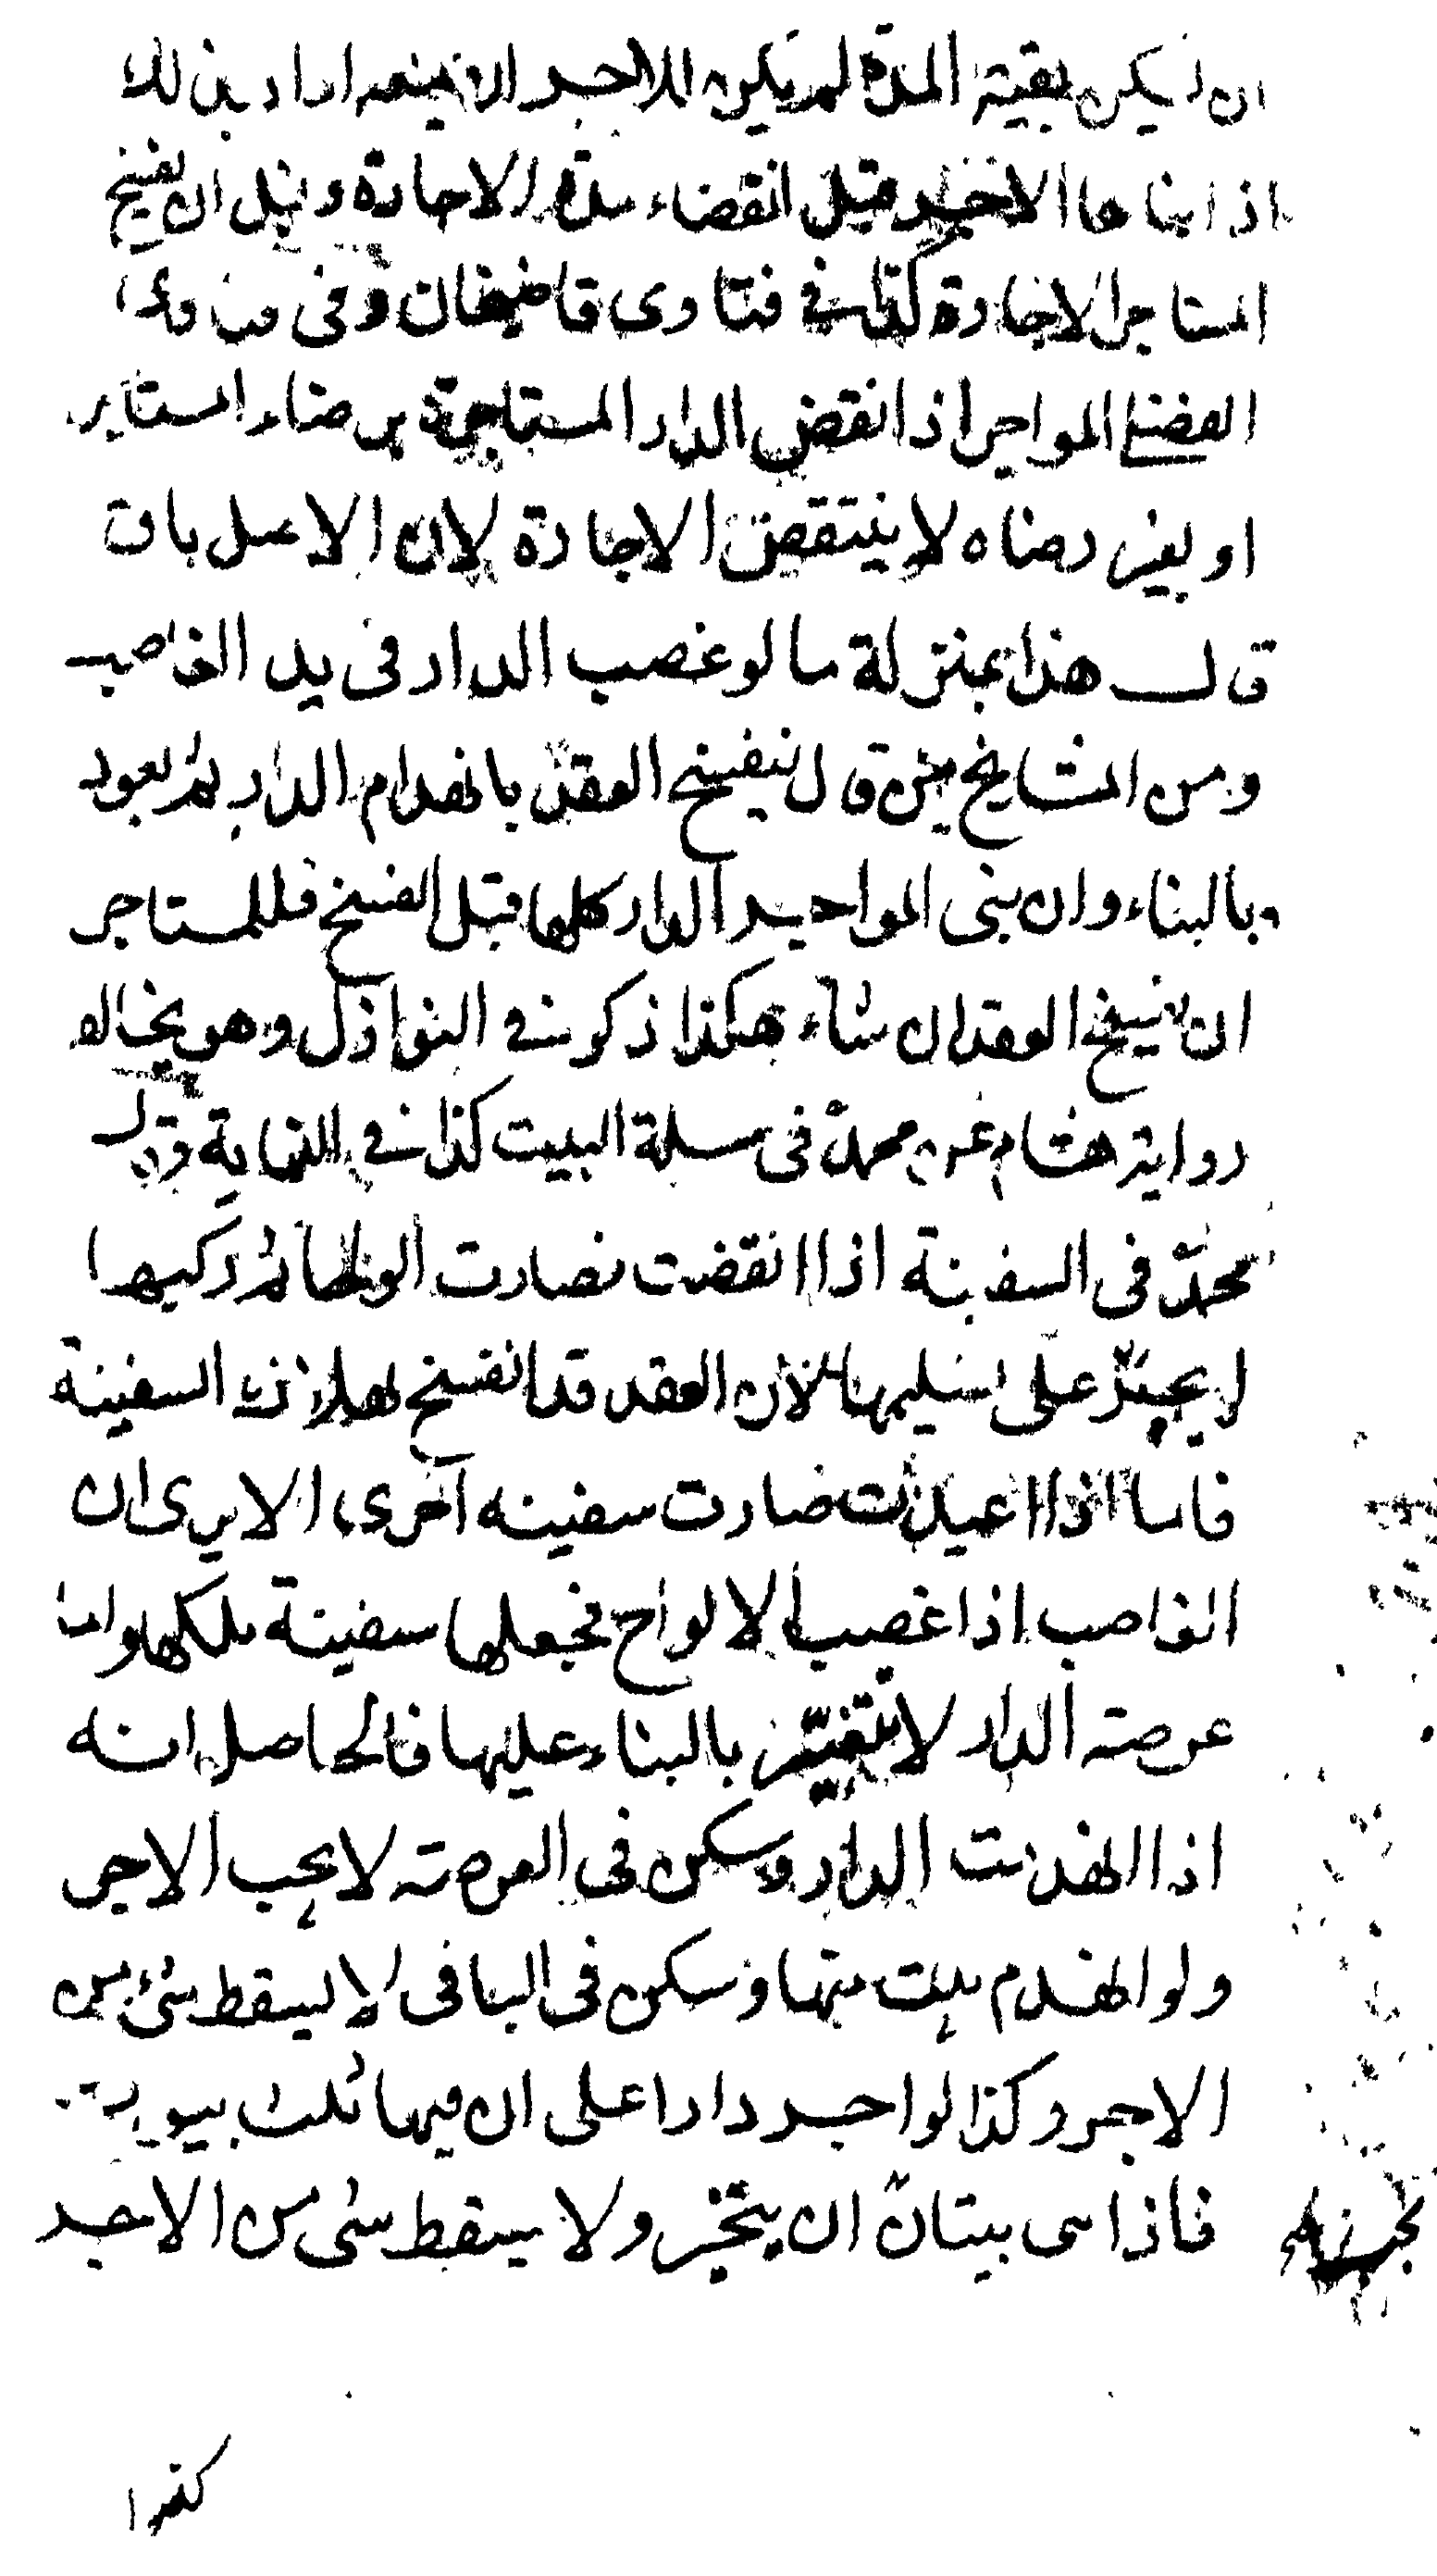 ان يسكن بقية المدة لم يكن للاجر ان يمنعه اراد بذلك
اذا بناها الاجر قبل انقضاء مدة الاجارة وقبل ان يفسخ
المستاجر الاجارة كذا في فتاوى قاضيخان وفي
الفضلي المواجر اذا نقض الدار المستاجرة برضاء المستاجر
او بغير رضاه لا ينتقض الاجارة لان الاصل باق
قال هذا بمنزلة ما لو غصب الدار في يد الغاصب
ومن المشايخ من قال ينفسخ العقد بانهدام الدار ثم يعود
بالبناء وان بنى المواجر الدار كلها قبل الفسخ فللمستاجر
ان يفسخ العقد ان شاء هكذا ذكر في النوازل وهو يخالف
رواية هشام عن محمد في مسئلة البيت كذا في النهاية وقال
محمد في السفينة اذا انقضت فصارت الواحا ثم ركبها
لم يجبر على تسليمها لان العقد قد انفسخ السفينة
فاما اذا اعيدت صارت سفينه اخرى الا يرى ان
الغاصب اذا غصب الالواح فجعلها سفينة ملكها واما
عرصة الدار لا يتغير بالبناء عليها فالحاصل انه
اذا انهدمت الدار وسكن في العرصة لا يجب الاجر
ولو انهدم بيت منها وسكن في الباقي لا يسقط شئ من
الاجر وكذا لو اجر دارا على ان فيها ثلث بيوت
فاذا هي بيتان ان يتخير ولا يسقط شي من الاجر